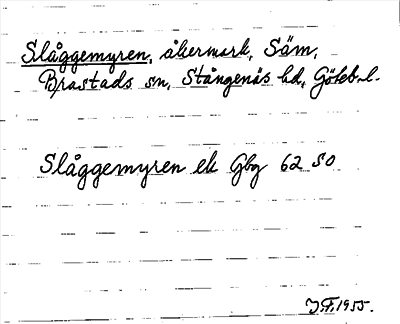 Slåggemyren, åkermark, Säm,
Brastads sn, Stångenäs hd, Göteb. l.
Slåggemyren ek Gbg 62 SO
J.F. 1955.